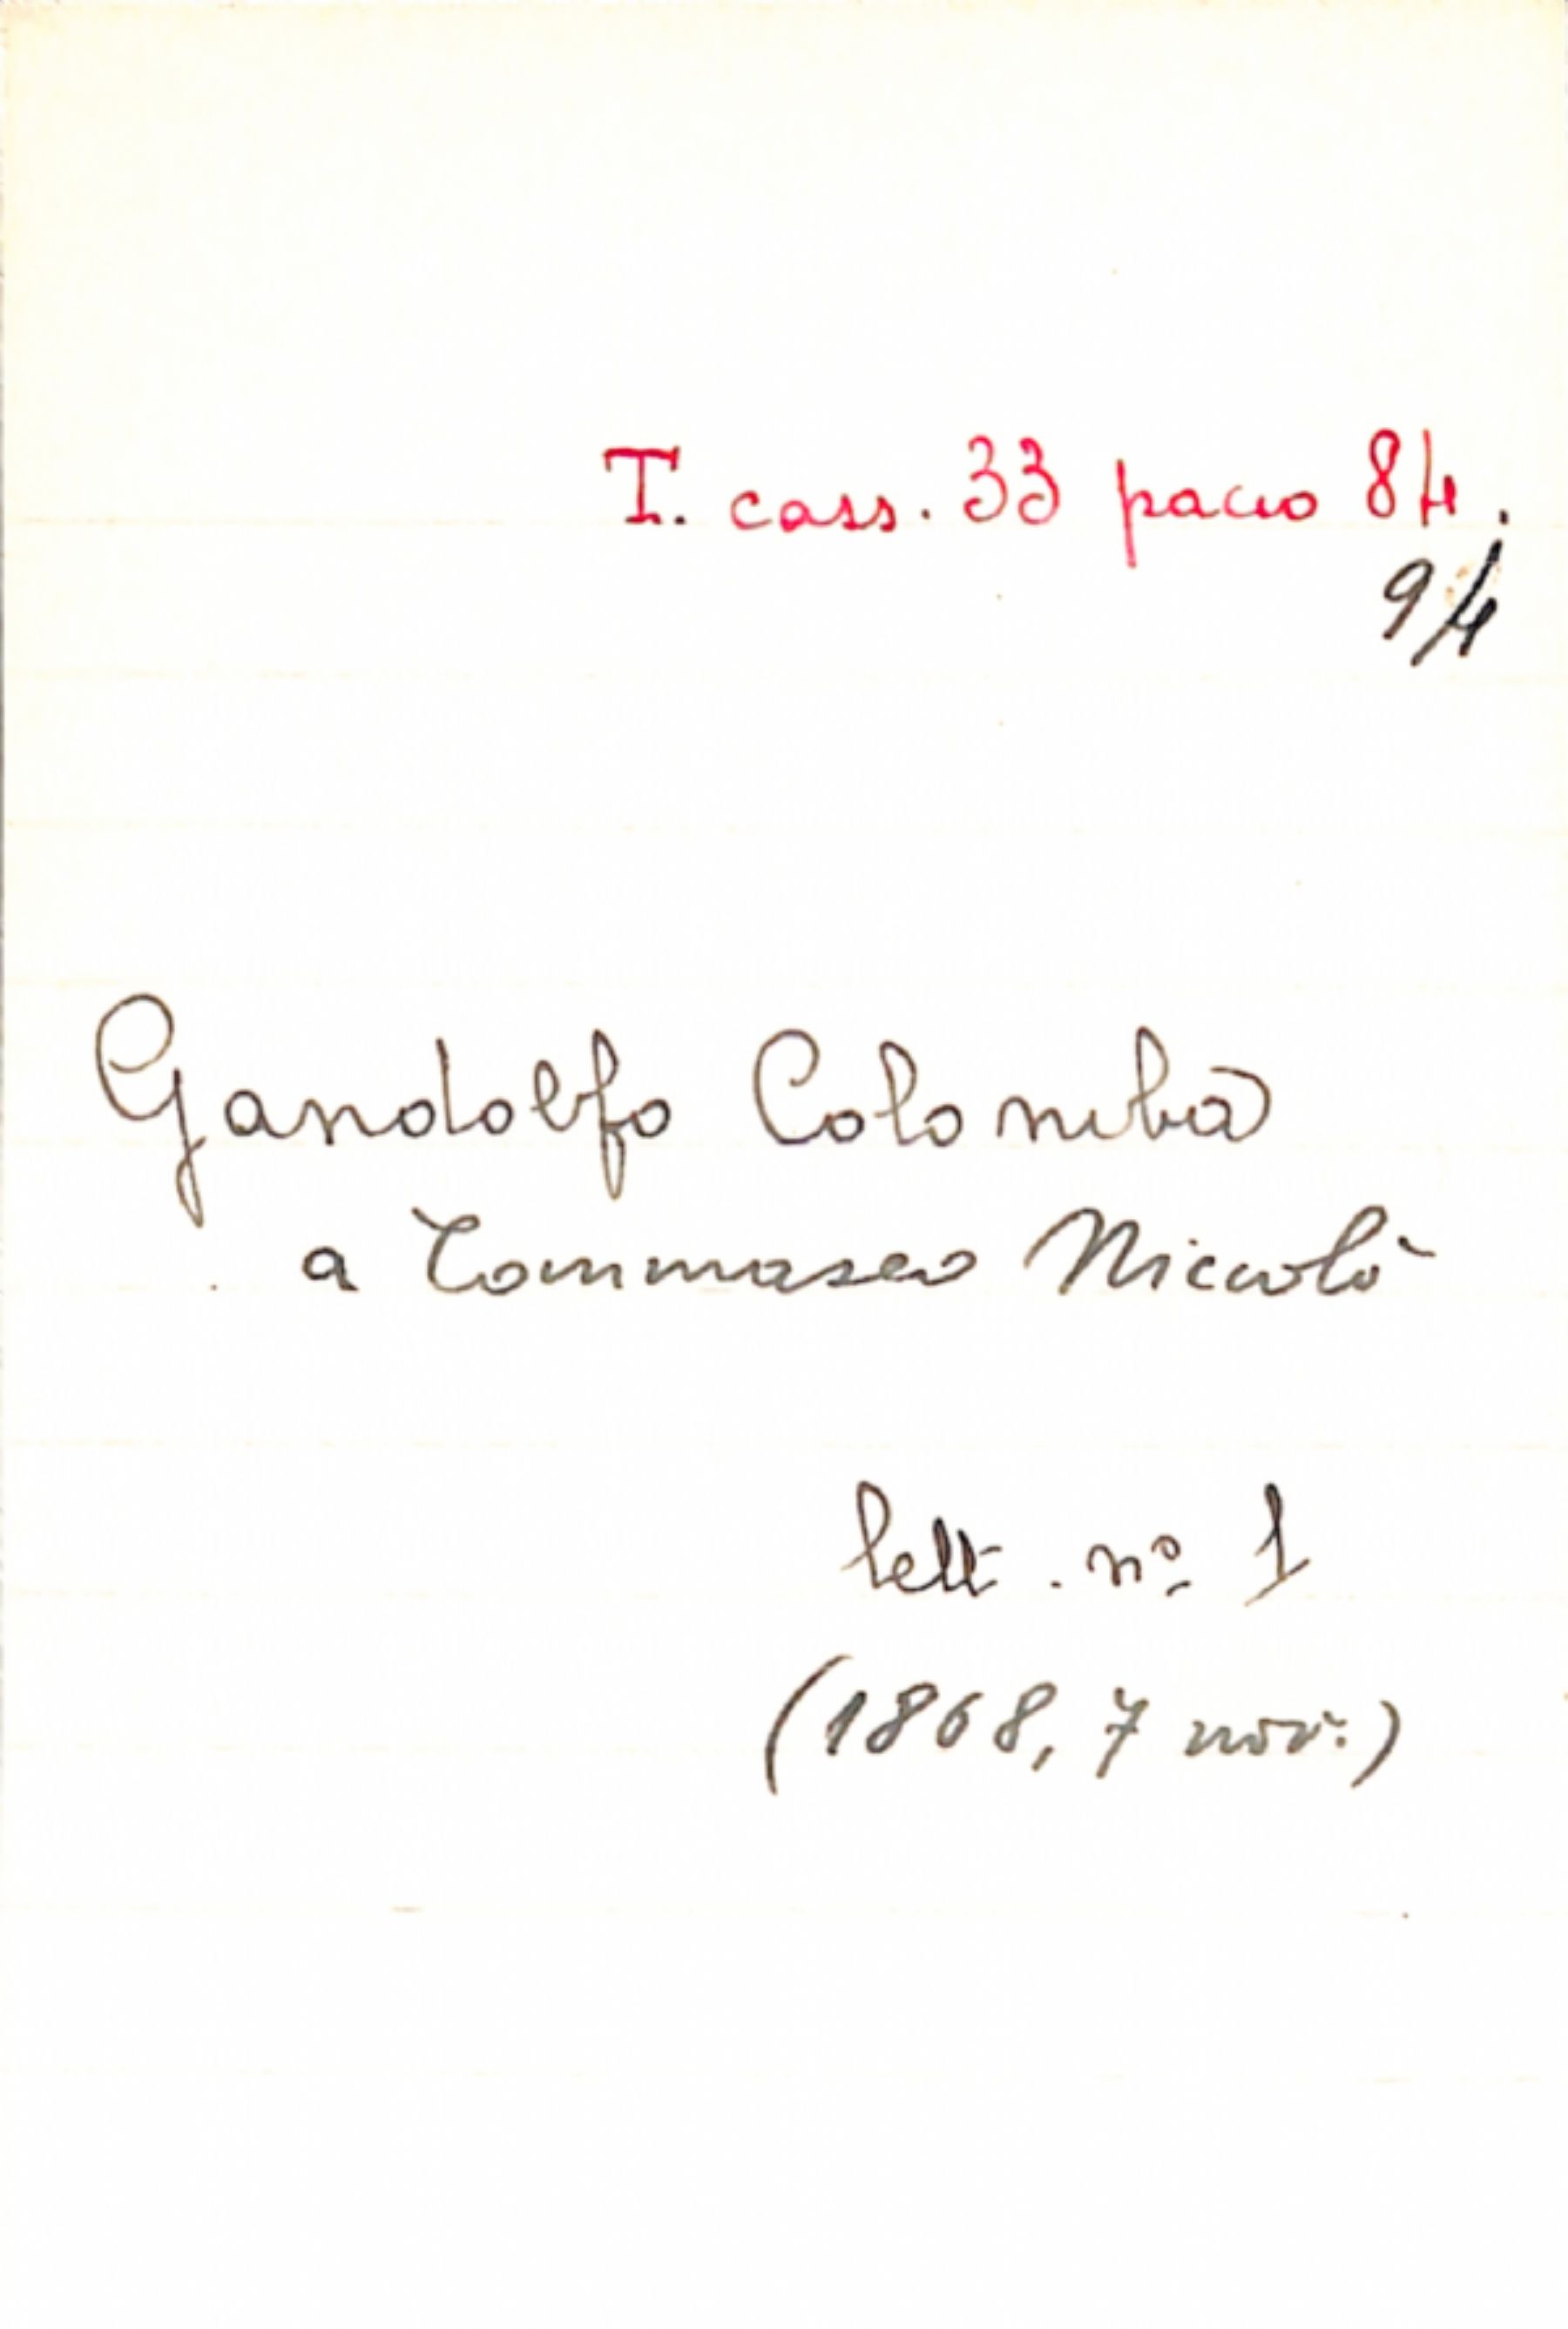 T. cass. 33 pacco 84.
9/4
Gandolfo Colomba
a Tommaseo Niccolò
lett. nº 1
(1868, 7 nov.)